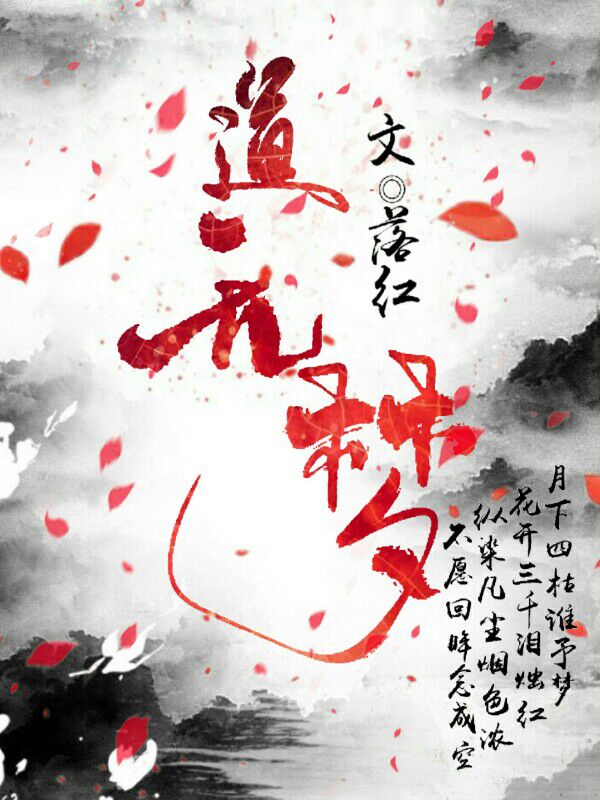 道元梦
文◎落红
月下四枯谁予梦
花开三千泪烛红
纵染凡尘烟色浓
不愿回眸念成空